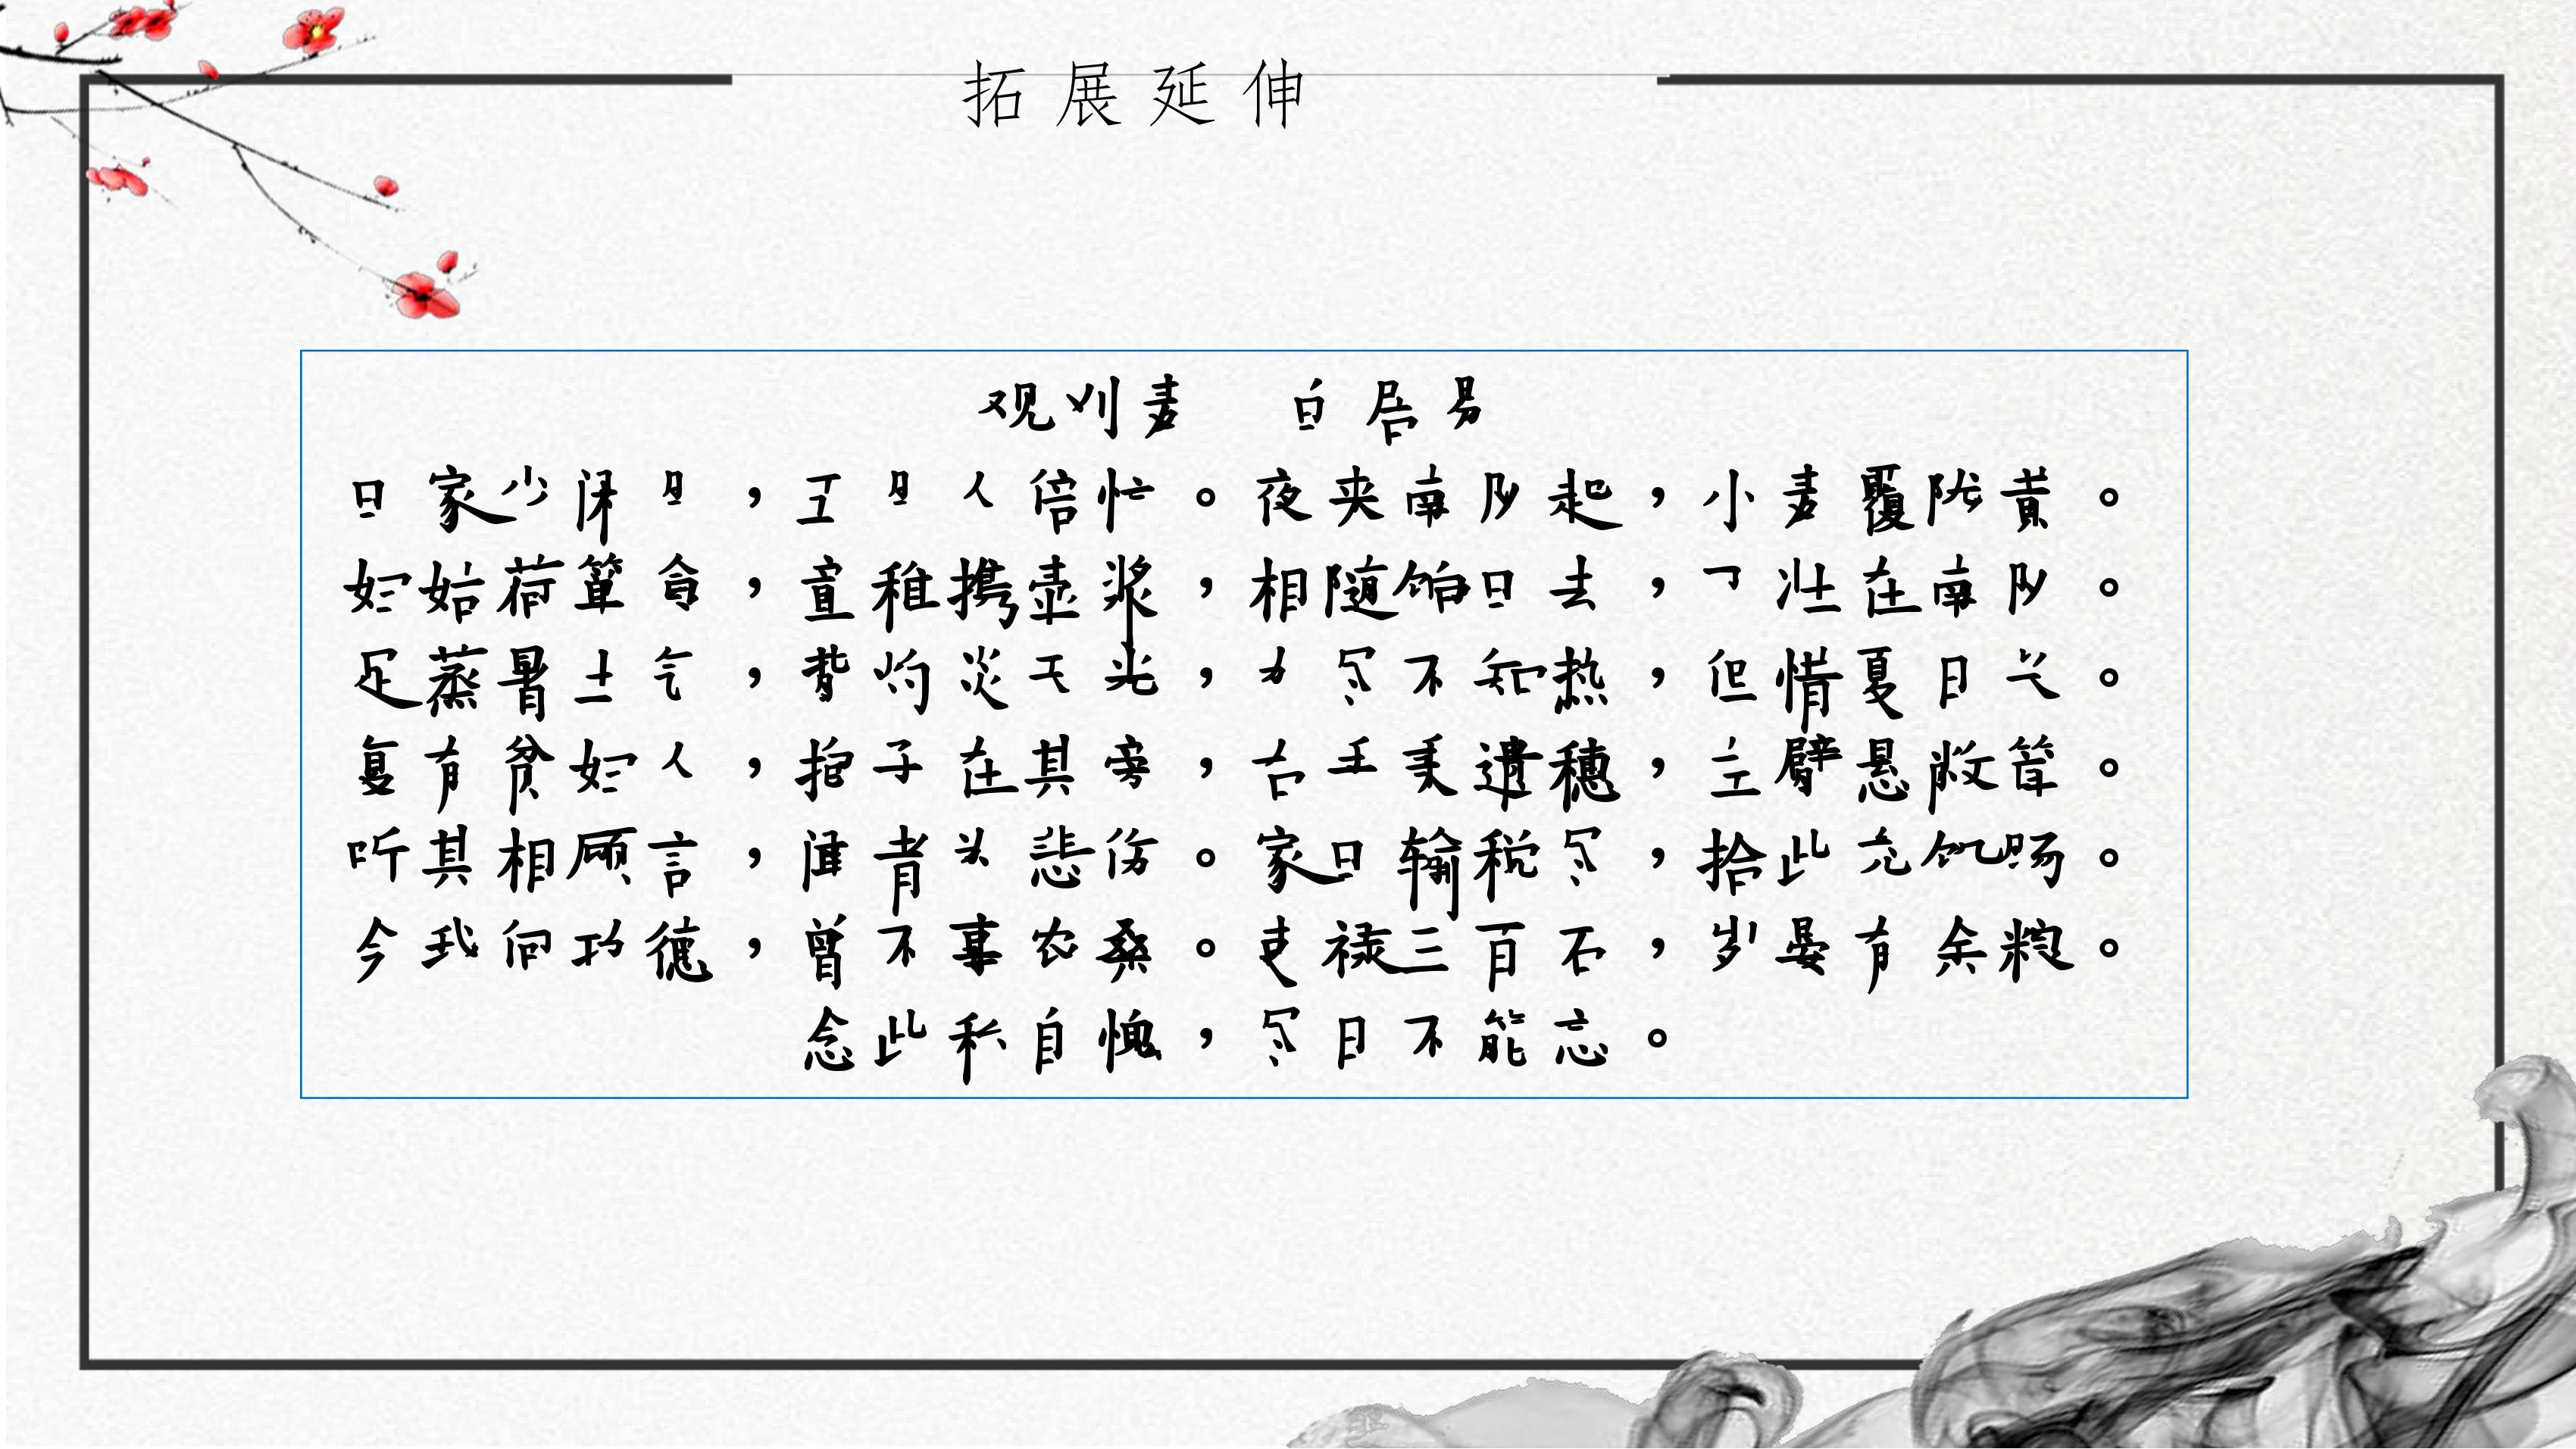 拓展延伸
观刈麦 白居易
田家少闲月，五月人倍忙。夜来南风起，小麦覆陇黄。
妇姑荷箪食，童稚携壶浆，相随饷田去，丁壮在南冈。
足蒸暑土气，背灼炎天光，力尽不知热，但惜夏日长。
复有贫妇人，抱子在其旁，右手秉遗穗，左臂悬敝筐。
听其相顾言，闻者为悲伤。家田输税尽，拾此充饥肠。
今我何功德，曾不事农桑。吏禄三百石，岁晏有余粮。
念此私自愧，尽日不能忘。